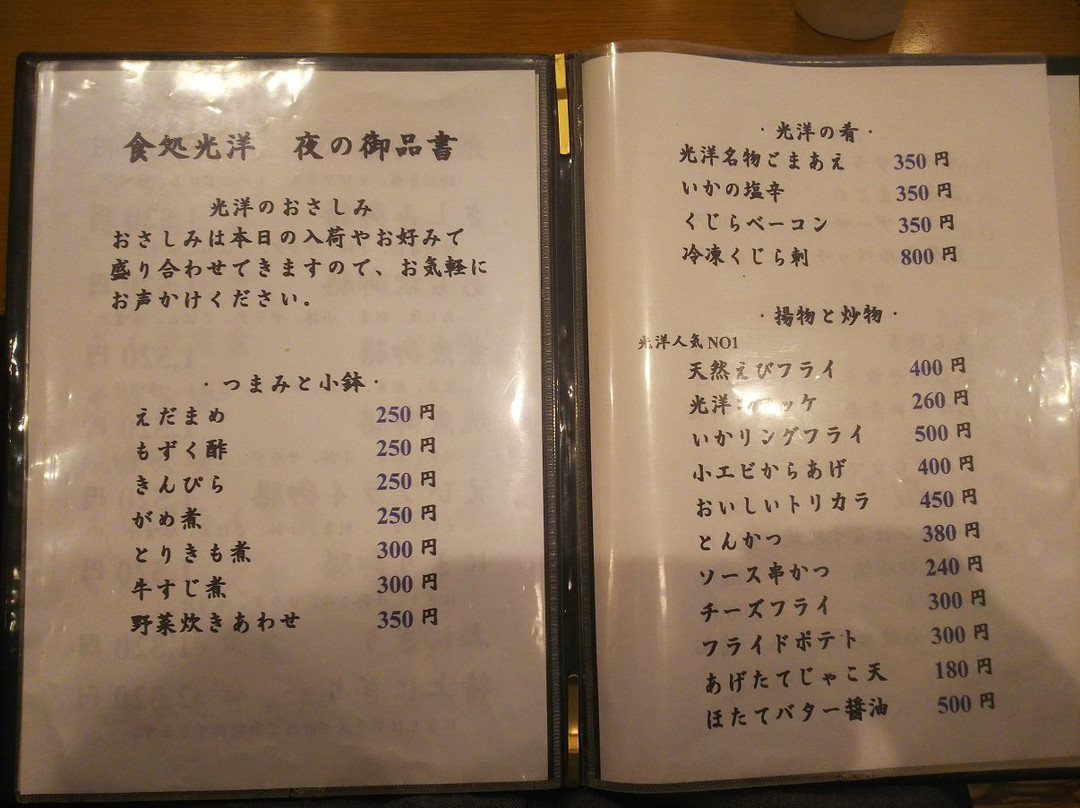 食処光洋　夜の御品書
光洋のおさしみ
おさしみは本日の入荷やお好みで
盛り合わせできますので、お気軽に
お声かけください。
・つまみと小鉢・
えだまめ 250円
もずく酢 250円
きんぴら 250円
がめ煮 250円
とりきも煮 300円
牛すじ煮 300円
野菜炊きあわせ 350円
・光洋の肴・
光洋名物ごまあえ 350円
いかの塩辛 350円
くじらベーコン 350円
冷凍くじら刺 800円
・揚物と炒物・
光洋人気NO1
天然えびフライ 400円
光洋コロッケ 260円
いかリングフライ 500円
小エビからあげ 400円
おいしいトリカラ 450円
とんかつ 380円
ソース串かつ 240円
チーズフライ 300円
フライドポテト 300円
あげたてじゃこ天 180円
ほたてバター醤油 500円